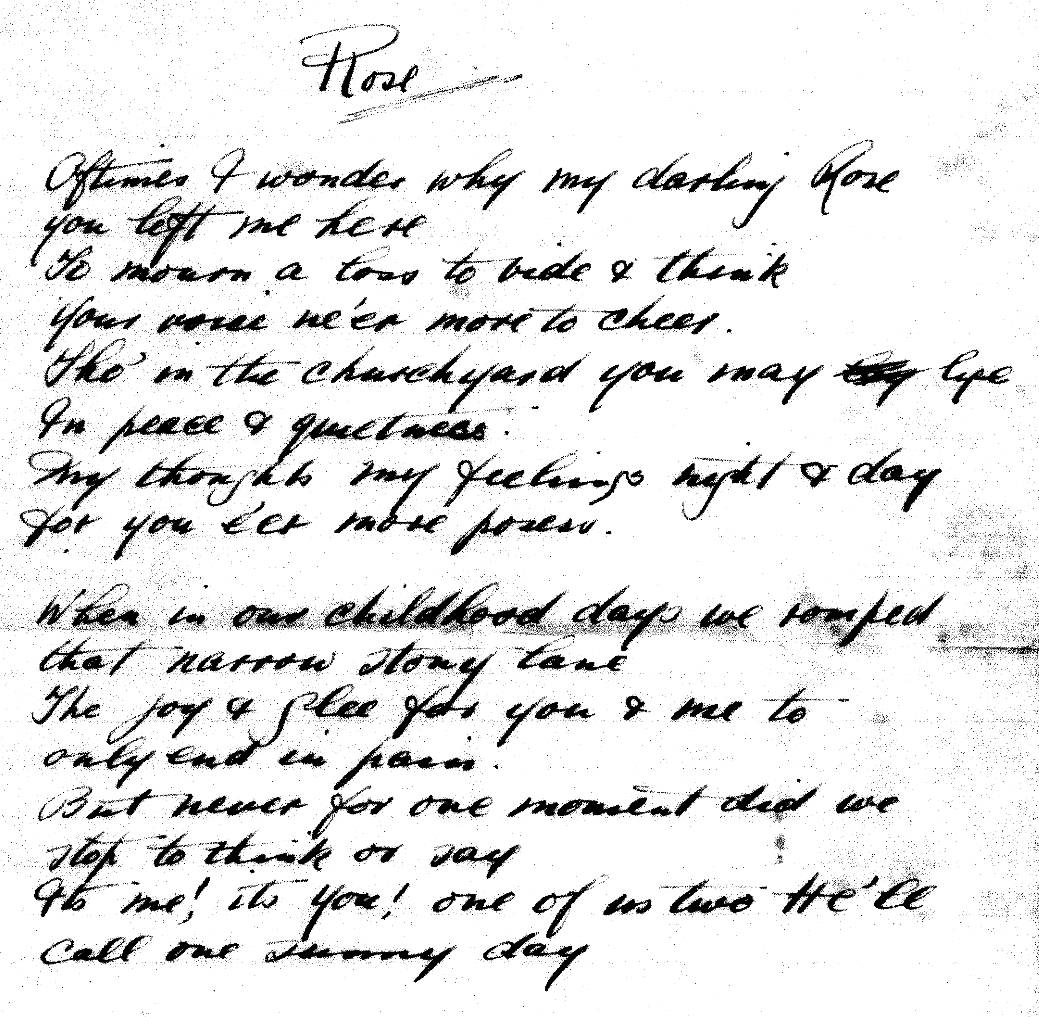 Rose
Oftimes I wonder why my darling Rose
you left me here
To mourn a loss to bide & think
Your voice ne'er more to cheer.
Tho' in the churchyard you may lye
In peace & quietness.
My thoughts my feelings night & day
for you e'er more posess.
When in our childhood days we romped
that narrow stony lane
The joy & glee for you & me to
only end in pain.
But never for one moment did we
stop to think or say
Its me! its you! one of us two He'll
call one sunny day